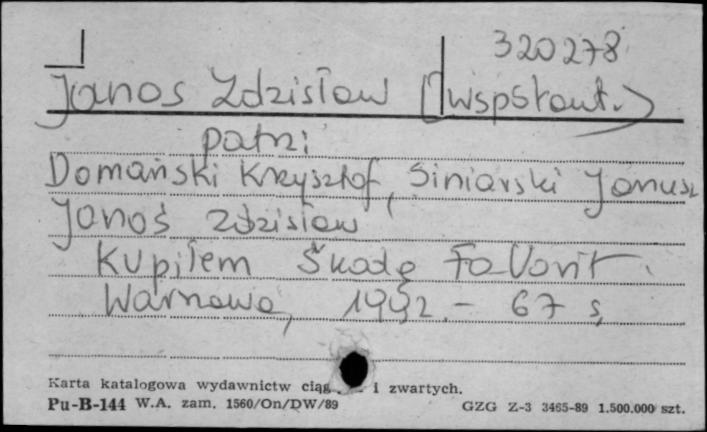 320278
Janos Zdzisław (wspstaut.)
patrz
Domański Krzysztof, Siniarski Janusz
Janoś Zdzisław
Kupiłem Škodę Favorit.
Warszawa, 1992. - 67 s,
Karta katalogowa wydawnictw ciąg i zwartych.
Pu-B-144 W.A. zam. 1560/On/DW/89 GZG Z-3 3465-89 1.500.000 szt.